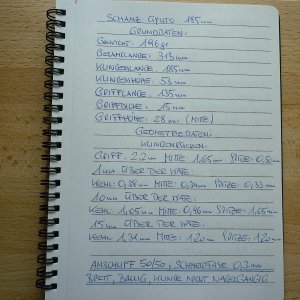 SCHANZ GYUTO 185mm
GRUNDDATEN:
GEWICHT: 196gr
GESAMTLÄNGE: 313mm
KLINGENLÄNGE: 185mm
KLINGENHÖHE: 53mm
GRIFFLÄNGE: 135mm
GRIFFDICKE: 15mm
GRIFFHÖHE: 28mm (MITTE)
GEOMETRIEDATEN:
KLINGENRÜCKEN:
GRIFF: 2,2mm MITTE: 1,65mm SPITZE: 0,80mm
1mm ÜBER DER WATE:
KEHL: 0,38mm MITTE: 0,34mm SPITZE: 0,33mm
10mm ÜBER DER WATE:
KEHL: 1,05mm MITTE: 0,96mm SPITZE: 1,05mm
15mm ÜBER DER WATE:
KEHL: 1,31mm MITTE: 1,20mm SPITZE: 1,20mm
ANSCHLIFF 50/50, SCHNEIDFASE 0,3mm
BREIT, BALLIG, KLINGE NICHT NAGELGÄNGIG